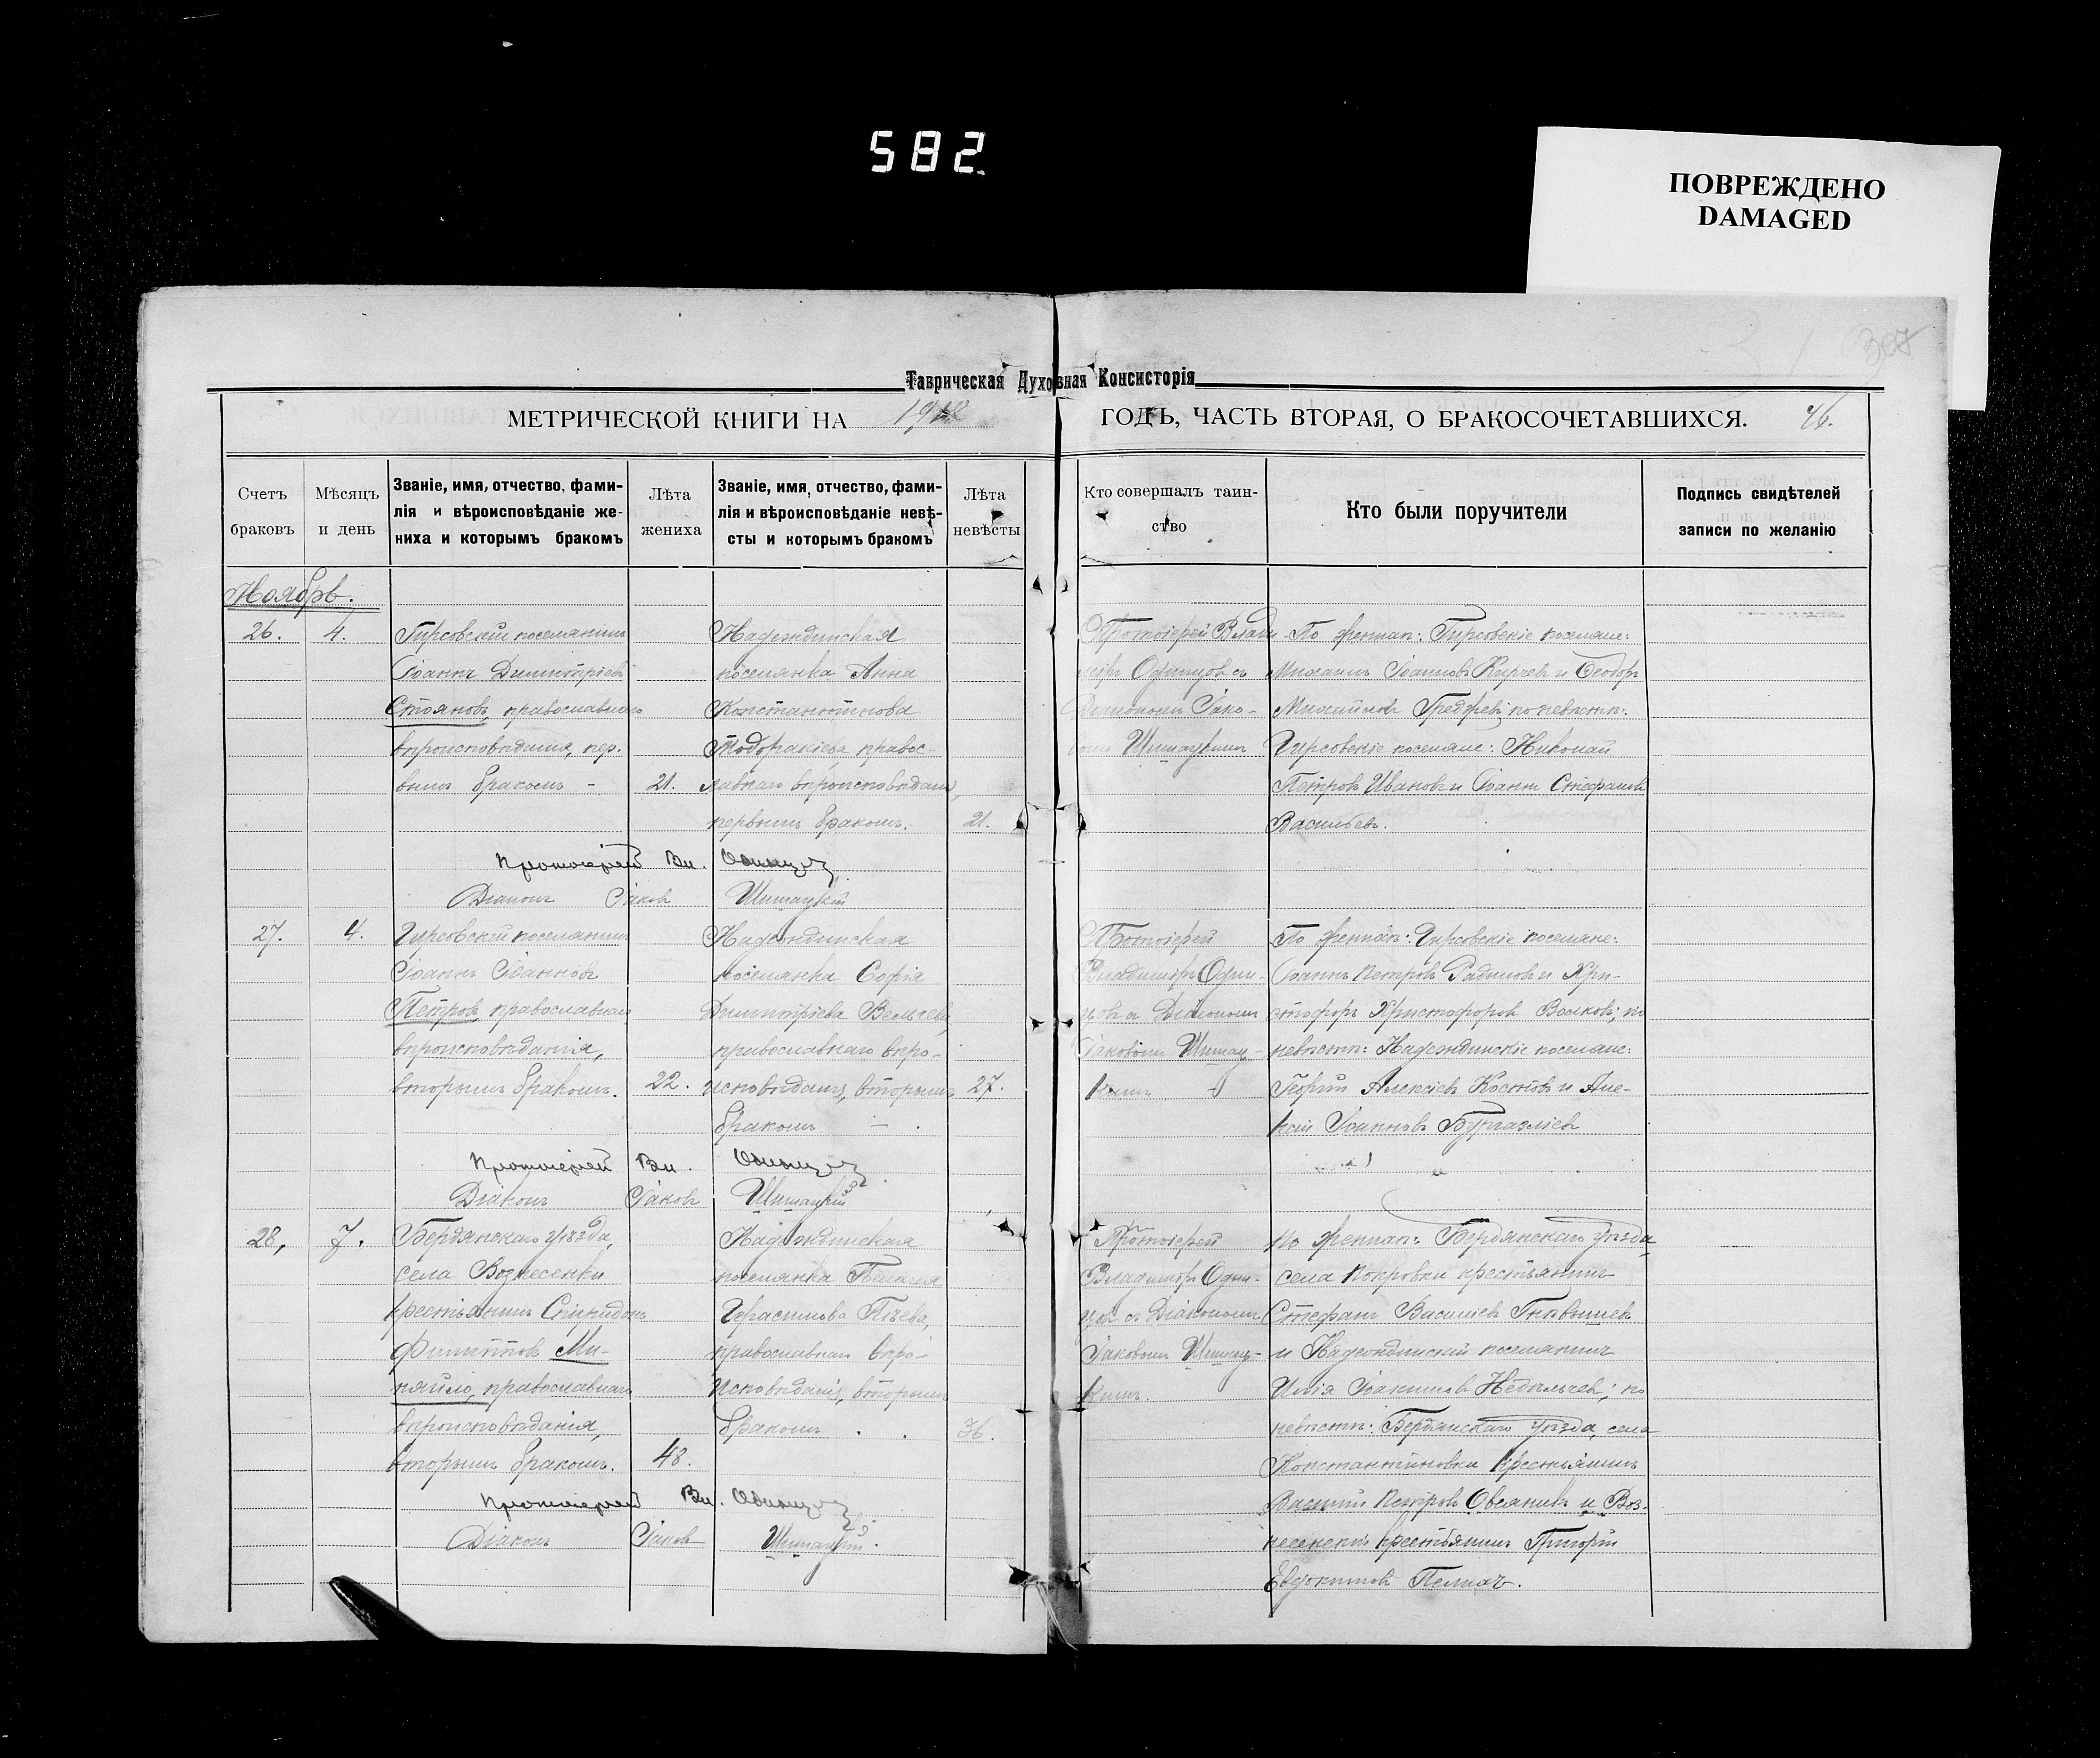 582
ПОВРЕЖДЕНО
DAMAGED
307
Таврическая Духовная Консисторія
МЕТРИЧЕСКОЙ КНИГИ НА 1912 ГОДЪ, ЧАСТЬ ВТОРАЯ, О БРАКОСОЧЕТАВШИХСЯ. 46.
Счетъ
браковъ
Мѣсяцъ
и день
Званіе, имя, отчество, фами-
лія и вѣроисповѣданіе же-
ниха и которымъ бракомъ
Лѣта
жениха
Званіе, имя, отчество, фами-
лія и вѣроисповѣданіе невѣ-
сты и которымъ бракомъ
Лѣта
невѣсты
Кто совершалъ таин-
ство
Кто были поручители
Подпись свидѣтелей
записи по желанію
Ноябрь.
26.
4.
Гирсовскій поселянинъ
Іоаннъ Димитріевъ
Стояновъ, православнаго
вѣроисповѣданія, пер-
вымъ бракомъ -
21.
Надеждинская
поселянка Анна
Константинова
православнаго вѣроисповѣданія,
первымъ бракомъ.
21.
Протоіерей Влади-
міръ Одинцовъ съ
Діакономъ Іако-
вомъ Шишацкимъ
По женихѣ: Гирсовскіе поселяне:
Михаилъ Іоанновъ Кирчевъ и Ѳеодоръ
Михайловъ по невѣстѣ:
Гирсовскіе поселяне: Николай
Петровъ Ивановъ и Іоаннъ Стефановъ
Васильевъ.
Протоіерей Вл. Одинцовъ
Діаконъ Іаковъ Шишацкій
27.
4.
Гирсовскій поселянинъ
Іоаннъ Іоанновъ
Петровъ, православнаго
вѣроисповѣданія,
вторымъ бракомъ.
22.
Надеждинская
поселянка Софія
Димитріева Вельчева,
православнаго вѣро-
исповѣданія, вторымъ
бракомъ -
27.
Протоіерей
Владиміръ Один-
цовъ съ Діакономъ
Іаковомъ Шишац-
кимъ
По женихѣ: Гирсовскіе поселяне:
Іоаннъ Петровъ Радиловъ и Хри-
стофоръ Христофоровъ Волковъ; по
невѣстѣ: Надеждинскіе поселяне:
Георгій Алексѣевъ Костовъ и Але-
ксій Іоанновъ
Протоіерей Вл. Одинцовъ
Діаконъ Іаковъ Шишацкій
28.
7.
Бердянскаго уѣзда,
села Вознесенки
крестьянинъ Спиридонъ
Филипповъ Ми-
няйло, православнаго
вѣроисповѣданія,
вторымъ бракомъ.
48.
Надеждинская
поселянка Пелагея
Герасимова
православнаго вѣро-
исповѣданія, вторымъ
бракомъ.
36.
Протоіерей
Владиміръ Один-
цовъ съ Діакономъ
Іаковомъ Шишац-
кимъ.
по женихѣ: Бердянскаго уѣзда,
села Покровки крестьянинъ
Стефанъ Васильевъ Гнѣвышевъ
и Надеждинскій поселянинъ
Илія Іоакимовъ Недѣльчевъ; по
невѣстѣ: Бердянскаго уѣзда, села
Константиновки крестьянинъ
Василій Петровъ Овсяникъ и Воз-
несенскій крестьянинъ Григорій
Евдокимовъ
Протоіерей Вл. Одинцовъ
Діаконъ Іаковъ Шишацкій.